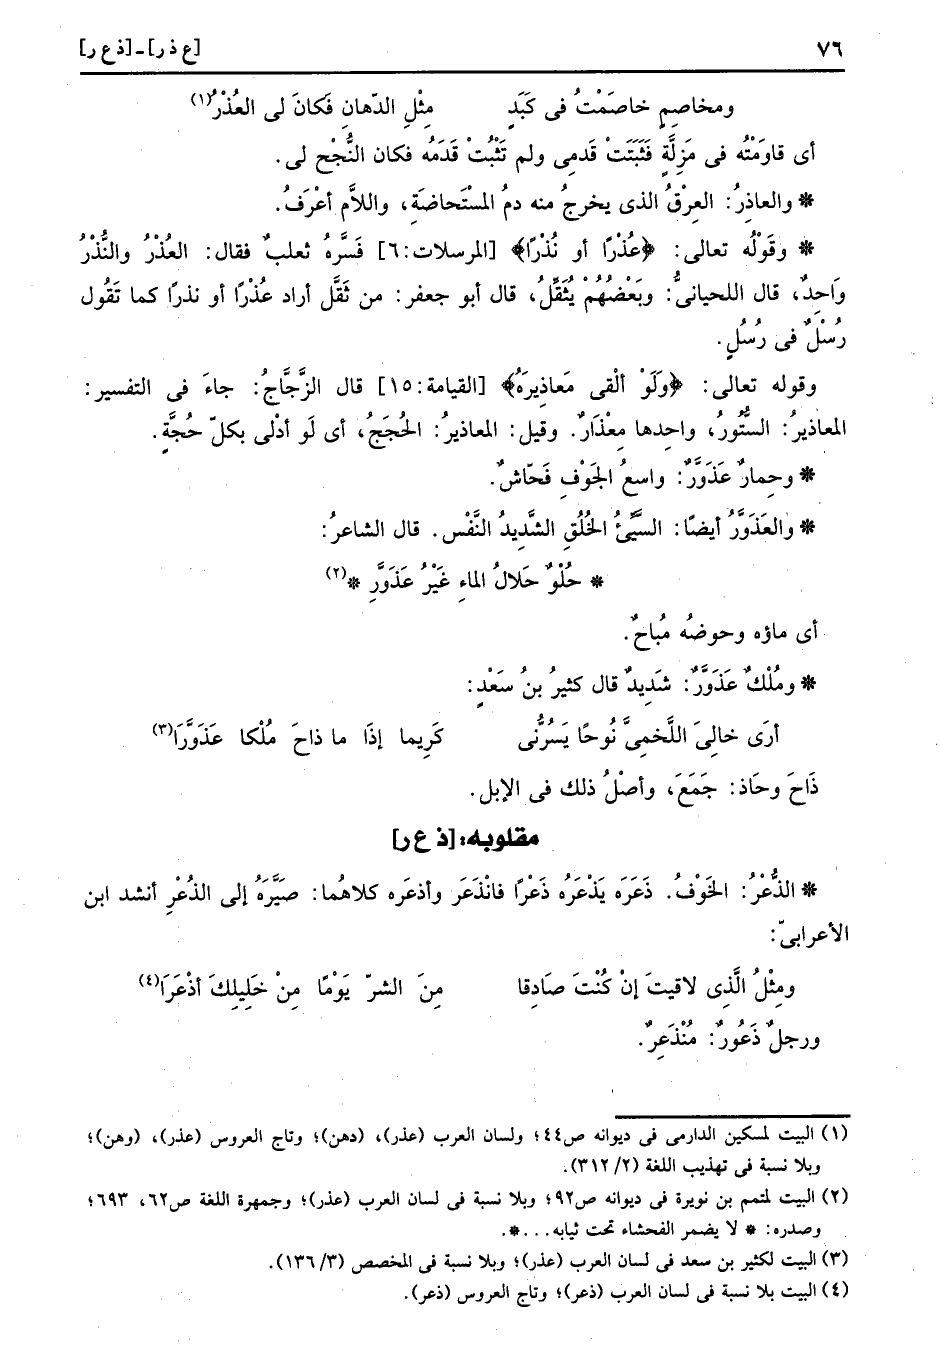 ٧٦ [ع ذ ر] ـ [ذ ع ر]
ومخاصمٍ خاصَمْتُ فى كَبَدٍ مِثْلِ الدّهانِ فَكانَ لى العُذْرُ(١)
أى قاوَمْتُه فى مَزِلَّةٍ فَثَبَتَتْ قَدمِى ولم تَثْبُتْ قَدَمُه فكان النُّجْح لى.
* والعاذِرُ: العِرْقُ الذى يخرجُ منه دمُ المسْتَحاضةِ، واللاَّم أعْرَفُ.
* وقَوْلُه تعالى: ﴿عُذْرًا أو نُذْرًا﴾ [المرسلات:٦] فَسَّرَهُ ثعلبٌ فقال: العُذْرُ والنُّذْرُ
وَاحِدٌ، قال اللحيانىُّ: وبَعْضُهُمْ يُثَقِّلُ، قال أبو جعفر: من ثَقَّل أراد عُذْرًا أو نذرًا كما تَقُول
رُسُلٌ فى رسُلٍ.
وقوله تعالى: ﴿ولَوْ ألْقى مَعاذِيرَهُ﴾ [القيامة:١٥] قال الزَّجَّاجُ: جاءَ فى التفسير:
المعاذيرُ: السُّتُورُ، واحِدها مِعْذَارٌ. وقيل: المعاذيرُ: الحُجَجُ، أى لَو أدْلى بكلّ حُجَّةٍ.
* وحمارٌ عَذَوَّرٌ: واسعُ الجَوْفِ فَحّاشٌ.
* والعَذَوَّرُ أيضًا: السَّيِّئُ الخُلُقِ الشَّديدُ النَّفْس. قال الشاعرُ:
* حُلْوٌ حَلالُ الماءِ غَيْرُ عَذَوَّرِ *(٢)
أى ماؤه وحوضُه مُباحٌ.
* ومُلْكٌ عَذَوَّرٌ: شَدِيدٌ قال كثيرُ بنُ سَعْدٍ:
أرَى خالِىَ اللَّخمِىَّ نُوحًا يَسُرُّنى كَرِيما إذَا ما ذاحَ مُلْكا عَذَوَّرَا(٣)
ذَاحَ وحَاذ: جَمَعَ، وأصْلُ ذلك فى الإبل.
مقلوبه: [ذ ع ر]
* الذُّعْرُ: الخَوْفُ. ذَعَرَه يَذْعَرُه ذَعْرًا فانْذَعَر وأذعَره كلاهُما: صَيَّرَهُ إلى الذُعْرِ أنشد ابن
الأعرابىّ:
ومِثْلُ الَّذِى لاقيتَ إنْ كُنْتَ صَادِقا مِنَ الشرّ يَوْمًا مِنْ خَلِيلِكَ أذْعَرَا(٤)
ورجلٌ ذَعُورٌ: مُنْذَعِرٌ.
(١) البيت لمسكين الدارمى فى ديوانه ص٤٤؛ ولسان العرب (عذر)، (دهن)؛ وتاج العروس (عذر)، (وهن)؛
وبلا نسبة فى تهذيب اللغة (٣١٢/٢).
(٢) البيت لمتمم بن نويرة فى ديوانه ص٩٢؛ وبلا نسبة فى لسان العرب (عذر)؛ وجمهرة اللغة ص٦٢، ٦٩٣؛
وصدره: * لا يضمر الفحشاء تحت ثيابه...*.
(٣) البيت لكثير بن سعد فى لسان العرب (عذر)؛ وبلا نسبة فى المخصص (١٣٦/٣).
(٤) البيت بلا نسبة فى لسان العرب (ذعر)؛ وتاج العروس (ذعر).